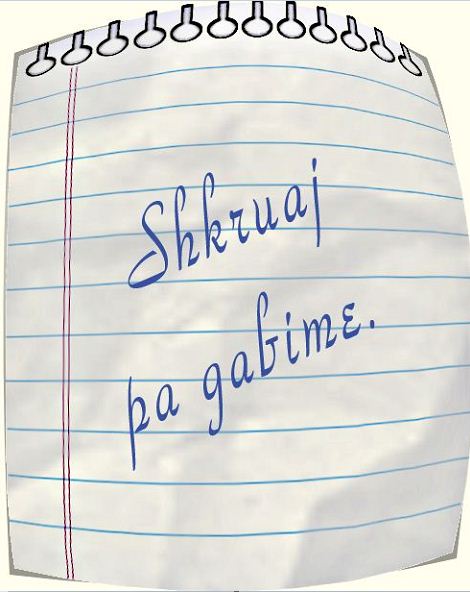 Shkruaj
pa gabime.